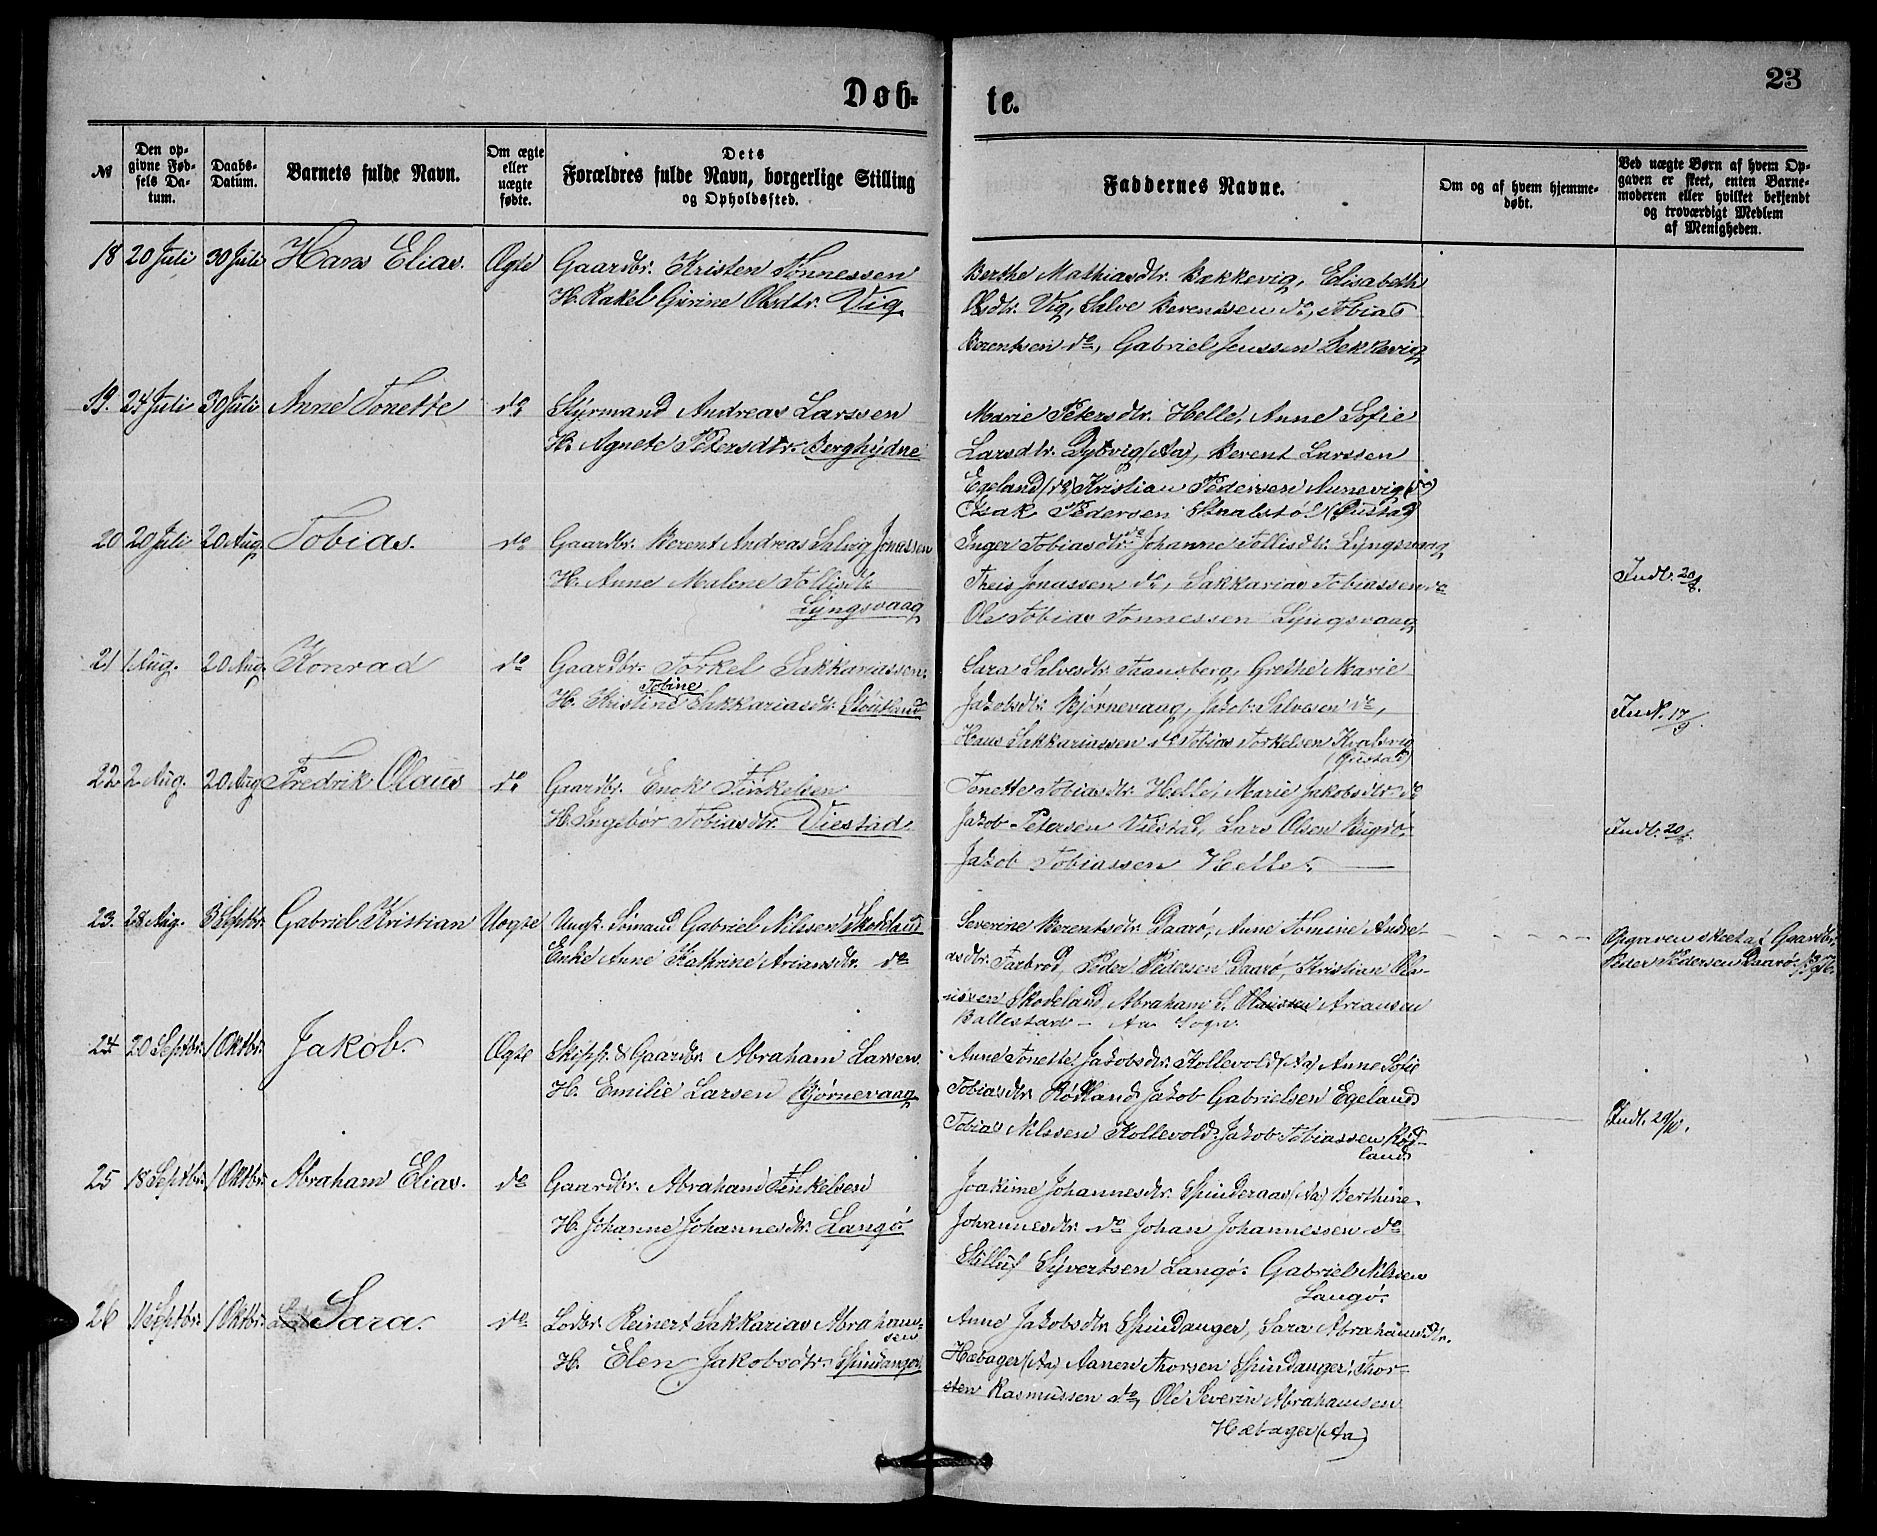 Døb-
te.
23
№
Den op-
givne Fød-
sels Da-
tum.
Daabs-
Datum.
Barnets fulde Navn.
Om ægte
eller
uægte
fødte.
Dets
Forældres fulde Navn, borgerlige Stilling
og Opholdssted.
Faddernes Navne.
Om og af hvem hjemme-
døbt.
Ved uægte Børn af hvem Op-
gaven er skeet, enten Barne-
moderen eller hvilket bekjendt
og troværdigt Medlem
af Menigheden.
18 20 Juli 30 Juli Hans Elias. Ægte
Gaardbr. Kristen Tønnessen
H. Rakel Gurine Olsdtr. Vig
Berthe Mathiasdtr. Bakkevig, Elisabeth
Olsdtr. Vig, Salve Berentsen do, Tobias
Berentsen do, Gabriel Jenssen Bekkevig
19. 24 Juli 30 Juli Anne Tonette do
Styrmand Andreas Larssen
H. Agnete Petersdtr. Berghydne
Marie Petersdtr. Helle, Anne Sofie
Larsdtr. Dybvig (Aa), Berent Larssen
Egeland (do) Kristian Pedersen Aunevig (do)
Isak Pedersen
20 20 Juli 20 Aug. Tobias. do
Gaardbr. Berent Andreas Salvig Jonassen
H. Anne Malene Tollisdtr.
Lyngsvaag
Inger Tobiasdtr. do Johanne Tollisdtr. Lyngsvaag
Theis Jonassen do, Sakkarias Tobiassen do
Ole Tobias Tønnessen Lyngsvaag
Indb. 20/8.
21 1 Aug. 20 Aug. Konrad do
Gaardbr. Torkel Sakkariassen.
Tobine
H. Kristine Sakkariasdtr.
Sara Salvesdtr. Fransberg, Grethe Marie
Jakobsdtr. Bjørnevaag, Jakob Salvesen do,
Hans Sakkariassen do Tobias Torkelsen
Indb. 17/9
22 2 Aug. 20 Aug Fredrik Olaus do
Gaardbr. Enok Tinkelsen
H. Ingebor Tobiasdtr. Viestad
Tonette Tobiasdtr. Helle, Marie Jakobsdtr do
Jakob Petersen Viestad, Lars Olsen Bugsø,
Jakob Tobiassen Helle.
Indb. 20/8.
23. 28 Aug. 3 Septbr. Gabriel Kristian Uægte
Ungk. Sømand Gabriel Nilssen Skodeland
Enke Anne Kathrine Ariansdtr. do
Severine Berentsdtr. Daarø, Anne Tomine Andre-
asdtr. Farbrod, Peder Pedersen Daarø, Kristian Ola-
ussen Skodeland, Abraham S. Ariansen
Ballestad - Aa Sogn.
Opgaven skeet af Gaardbr.
Peder Pedersen Daarø.
24 20 Septbr. 1 Oktbr. Jakob. Ægte
Skipp. & Gaardbr. Abraham Larsen.
H. Emilie Larsen Bjørnevaag
Anne Tonette Jakobsdtr. Kollevold (Aa) Anne Sofie
Tobiasdtr. Rødland Jakob Gabrielsen Egeland
Tobias Nilssen Kollevold, Jakob Tobiassen Rød-
land
Indb. 29/10.
25 18 Septbr. 1 Oktbr. Abraham Elias. do
Gaardbr. Abraham Tinkelsen
H. Johanne Johannesdtr. Langø
Joakime Johannesdtr. Spinderaas (Aa) Berthine
Johannesdtr. do Johan Johannessen do
Silluf Syvertsen Langø. Gabriel Nilssen
Langø.
26 11 Septbr. 1 Oktbr. Sara. do
Lodbr. Reinert Sakkarias Abraham-
sen
H. Elen Jakobsdtr. Spindanger
Anne Jakobsdtr. Spindanger, Sara Abrahamsdtr.
Hæbager (Aa) Aanen Thorsen Spindanger, Thor-
sten Rasmussen do, Ole Severin Abrahamsen
Hæbager (Aa)